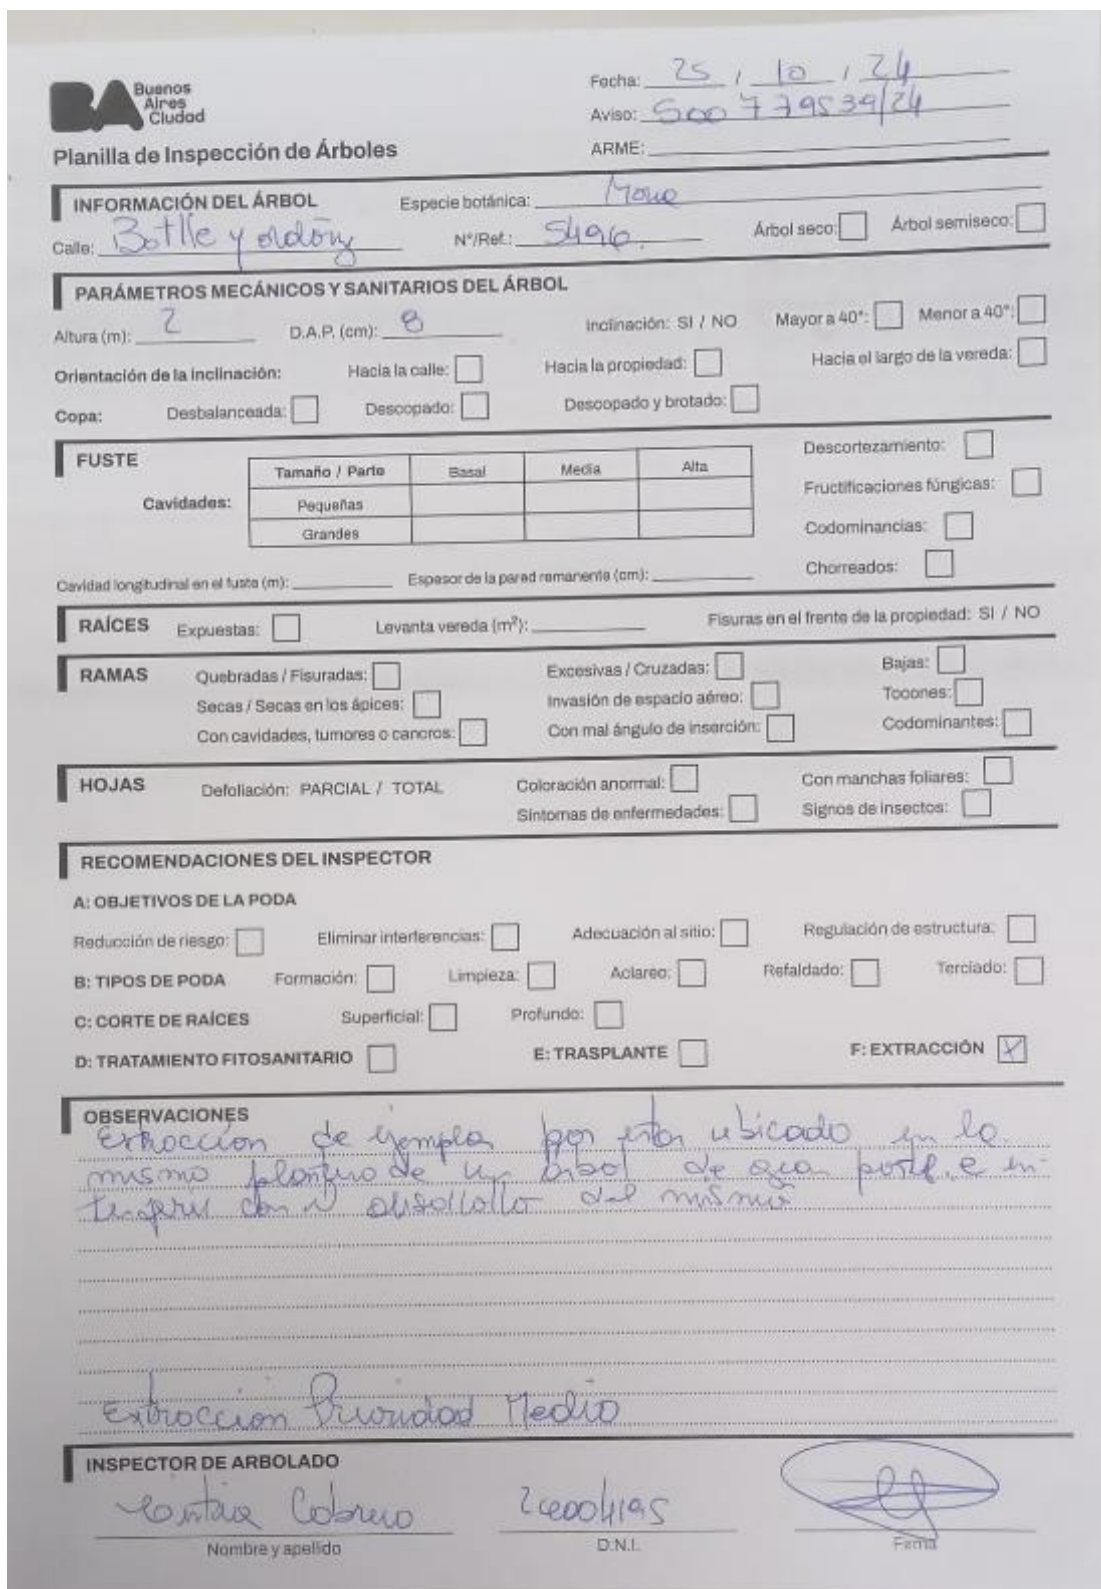 BA Buenos Aires Ciudad
Fecha: 25 / 10 / 24
Aviso: S00779539/24
Planilla de Inspección de Árboles
ARME:
INFORMACIÓN DEL ÁRBOL Especie botánica: Mora
Calle: Batlle y ordóñz N°/Ref.: 5496. Árbol seco: Árbol semiseco:
PARÁMETROS MECÁNICOS Y SANITARIOS DEL ÁRBOL
Altura (m): 2 D.A.P. (cm): 8 Inclinación: SI / NO Mayor a 40°: Menor a 40°:
Orientación de la inclinación: Hacia la calle: Hacia la propiedad: Hacia el largo de la vereda:
Copa: Desbalanceada: Descopado: Descopado y brotado:
FUSTE Descortezamiento:
Tamaño / Parte Basal Media Alta
Cavidades: Pequeñas Fructificaciones fúngicas:
Grandes Codominancias:
Cavidad longitudinal en el fuste (m): Espesor de la pared remanente (cm): Chorreados:
RAÍCES Expuestas: Levanta vereda (m²): Fisuras en el frente de la propiedad: SI / NO
RAMAS Quebradas / Fisuradas: Excesivas / Cruzadas: Bajas:
Secas / Secas en los ápices: Invasión de espacio aéreo: Tocones:
Con cavidades, tumores o cancros: Con mal ángulo de inserción: Codominantes:
HOJAS Defoliación: PARCIAL / TOTAL Coloración anormal: Con manchas foliares:
Síntomas de enfermedades: Signos de insectos:
RECOMENDACIONES DEL INSPECTOR
A: OBJETIVOS DE LA PODA
Reducción de riesgo: Eliminar interferencias: Adecuación al sitio: Regulación de estructura:
B: TIPOS DE PODA Formación: Limpieza: Aclareo: Refaldado: Terciado:
C: CORTE DE RAÍCES Superficial: Profundo:
D: TRATAMIENTO FITOSANITARIO E: TRASPLANTE F: EXTRACCIÓN X
OBSERVACIONES
Extracción de ejemplar por estar ubicado en la
misma plantera de un árbol de gran porte, e in-
terferir con el desarrollo del mismo
Extraccion Prioridad Media
INSPECTOR DE ARBOLADO
Cabrera
Nombre y apellido D.N.I. Firma